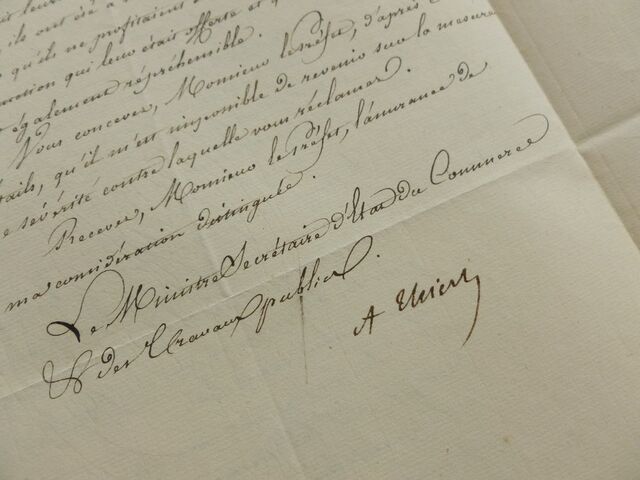 ils ont été à
qu'ils ne profitaient
qui leur était offerte et
également répréhensible.
Vous concevez, Monsieur le Préfet, d'après
détails, qu'il m'est impossible de revenir sur la mesure
de sévérité contre laquelle vous réclamez.
Recevez, Monsieur le Préfet, l'assurance de
ma considération distinguée.
Le Ministre Secrétaire d'Etat du Commerce
& des Travaux publics.
A Thiers